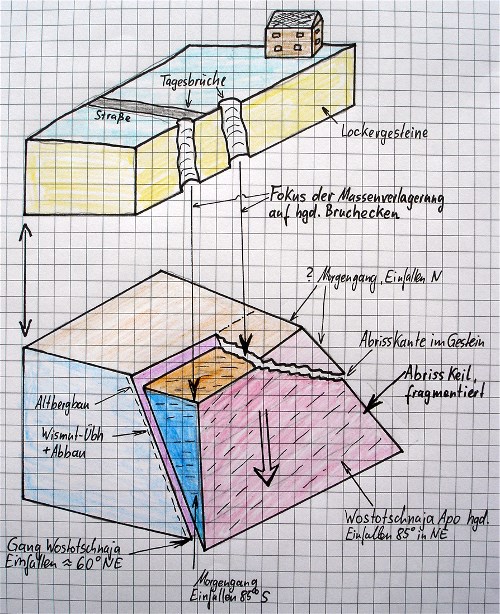 Tagesbrüche
Straße
Lockergesteine
Fokus der Massenverlagerung
auf hgd. Bruchecken
? Morgengang, Einfallen N
Abrisskante im Gestein
Abriss Keil,
fragmentiert
Altbergbau
Wismut-Übh
+ Abbau
Wostotschnaja Apo hgd.
Einfallen 85° in NE
Gang Wostotschnaja
Einfallen ≈ 60° NE
Morgengang
Einfallen 85° S